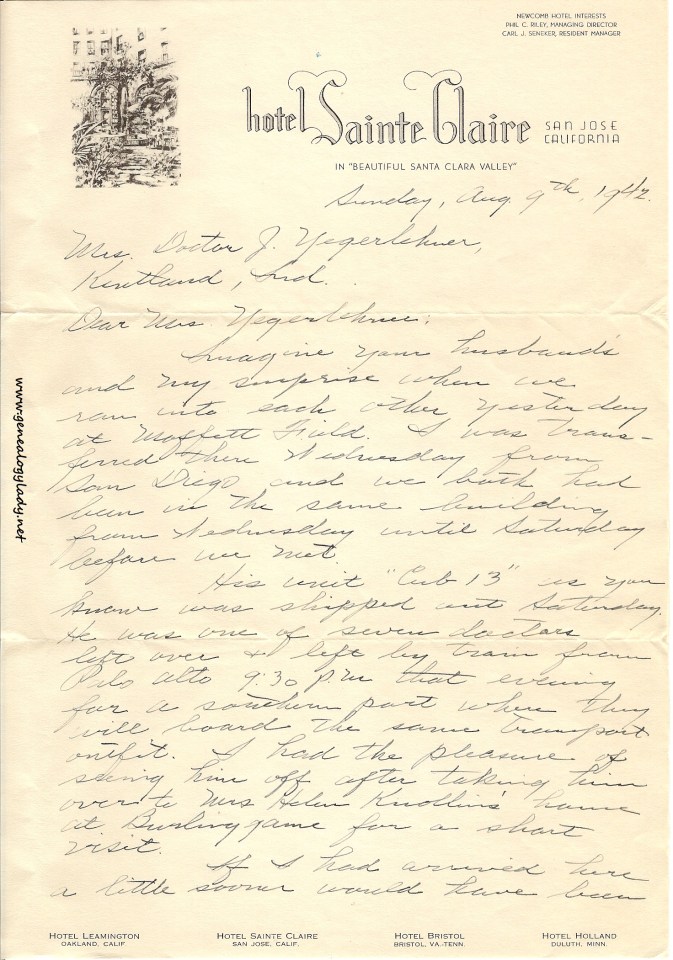 NEWCOMB HOTEL INTERESTS
PHIL C. RILEY, MANAGING DIRECTOR
CARL J. SENEKER, RESIDENT MANAGER
hotel Sainte Claire SAN JOSE
CALIFORNIA
IN "BEAUTIFUL SANTA CLARA VALLEY"
Sunday, Aug. 9th, 1942.
Mrs. Doctor J. Yegerlehner,
Kentland, Ind.
Dear Mrs. Yegerlehner:
Imagine your husband's
and my surprise when we
ran into each other yesterday
at Moffett Field. I was trans-
ferred there Wednesday from
San Diego and we both had
been in the same building
from Wednesday until Saturday
before we met.
His unit "Cub 13" as you
know was shipped out Saturday.
He was one of seven doctors
left over & left by train from
Palo Alto 9:30 p.m that evening
for a southern port where they
will board the same transport
outfit. I had the pleasure of
seeing him off after taking him
over to Mrs Helen Knollin's home
at Burlingame for a short
visit.
If I had arrived here
a little sooner would have been
HOTEL LEAMINGTON
OAKLAND, CALIF.
HOTEL SAINTE CLAIRE
SAN JOSE, CALIF.
HOTEL BRISTOL
BRISTOL, VA.-TENN.
HOTEL HOLLAND
DULUTH, MINN.
www.genealogylady.net